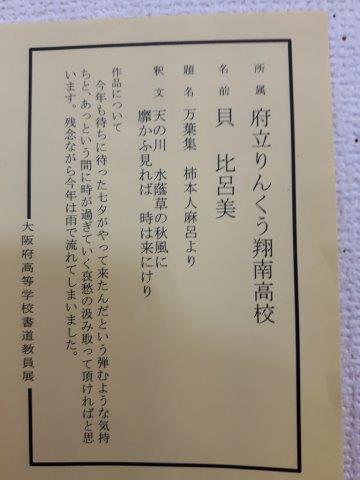 所属 府立りんくう翔南高校
名前 貝 比呂美
題名 万葉集 柿本人麻呂より
釈文 天の川 水蔭草の秋風に
靡かふ見れば 時は来にけり
作品について
今年も待ちに待った七夕がやって来たんだという弾むような気持
ちと、あっという間に時が過ぎていく哀愁の汲み取って頂ければと思
います。残念ながら今年は雨で流れてしまいました。
大阪府高等学校書道教員展